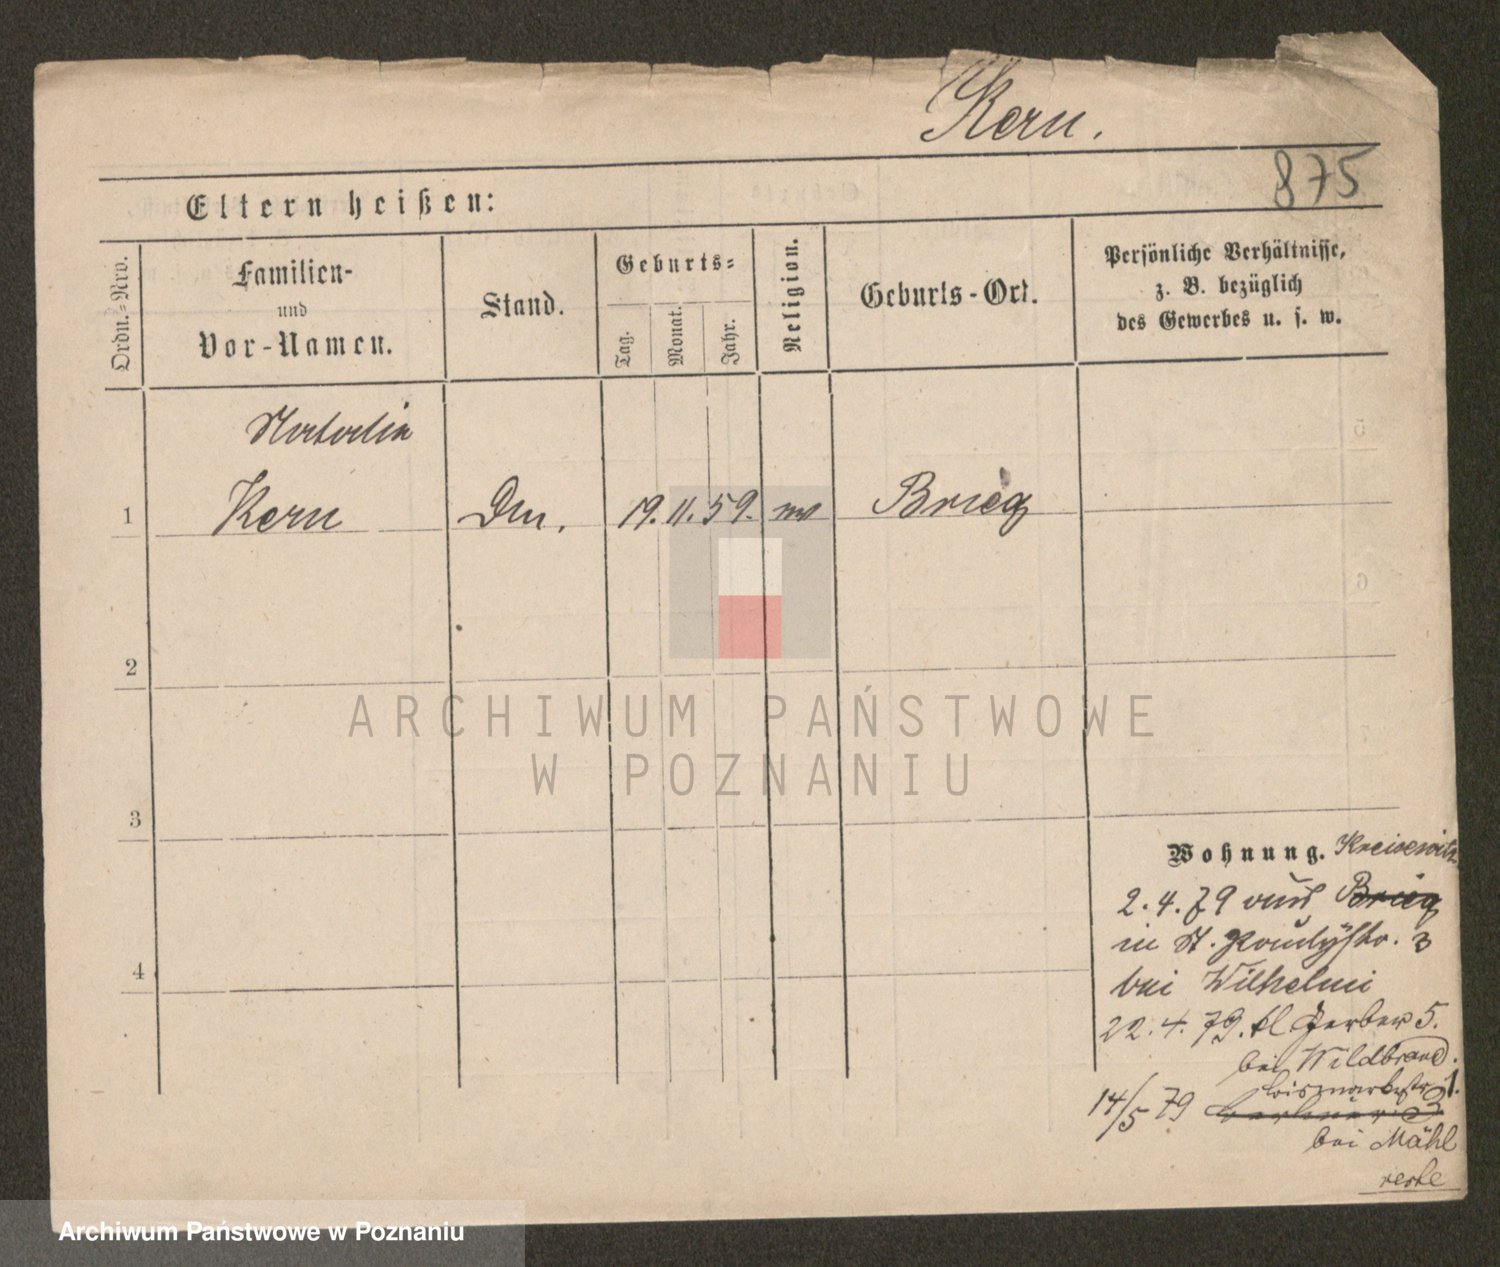 Kern.
875
Eltern heißen:
Ordn.=Nro.
Familien-
und
Vor-Namen.
Stand.
Geburts=
Tag.
Monat.
Jahr.
Religion.
Geburts-Ort.
Persönliche Verhältnisse,
z. B. bezüglich
des Gewerbes u. s. w.
Natalia
1 Kern 19. 11. 59. Brieg
2
3
4
ARCHIWUM PAŃSTWOWE
W POZNANIU
Wohnung. Kreisewitz
2. 4. 79 aus Brieg
in St. 3
bei Wilhelmi
22. 4. 79. kl Gerber 5.
bei Wildbrand.
Bismarkstr 1.
14/5 79
bei Mähl
Archiwum Państwowe w Poznaniu